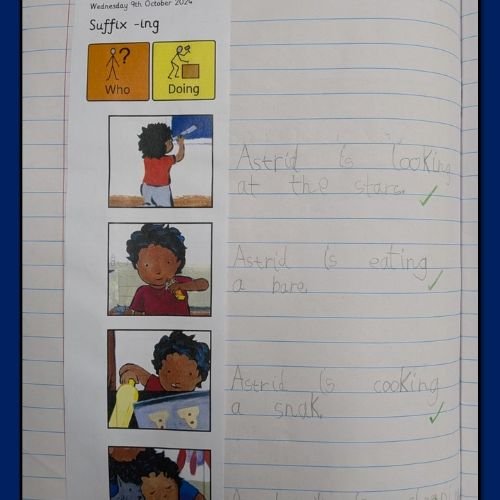 Wednesday 9th October 2024
Suffix -ing
Who
Doing
Astrid is looking
at the stars.
Astrid is eating
a bare.
Astrid is cooking
a snak.